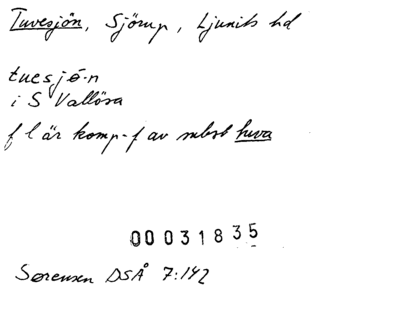 Tuvesjön, Sjörup, Ljunits hd
tuesjö-n
i S Vallösa
f l är komp-f av subst huva
00031835
Sørensen DSÅ 7:142